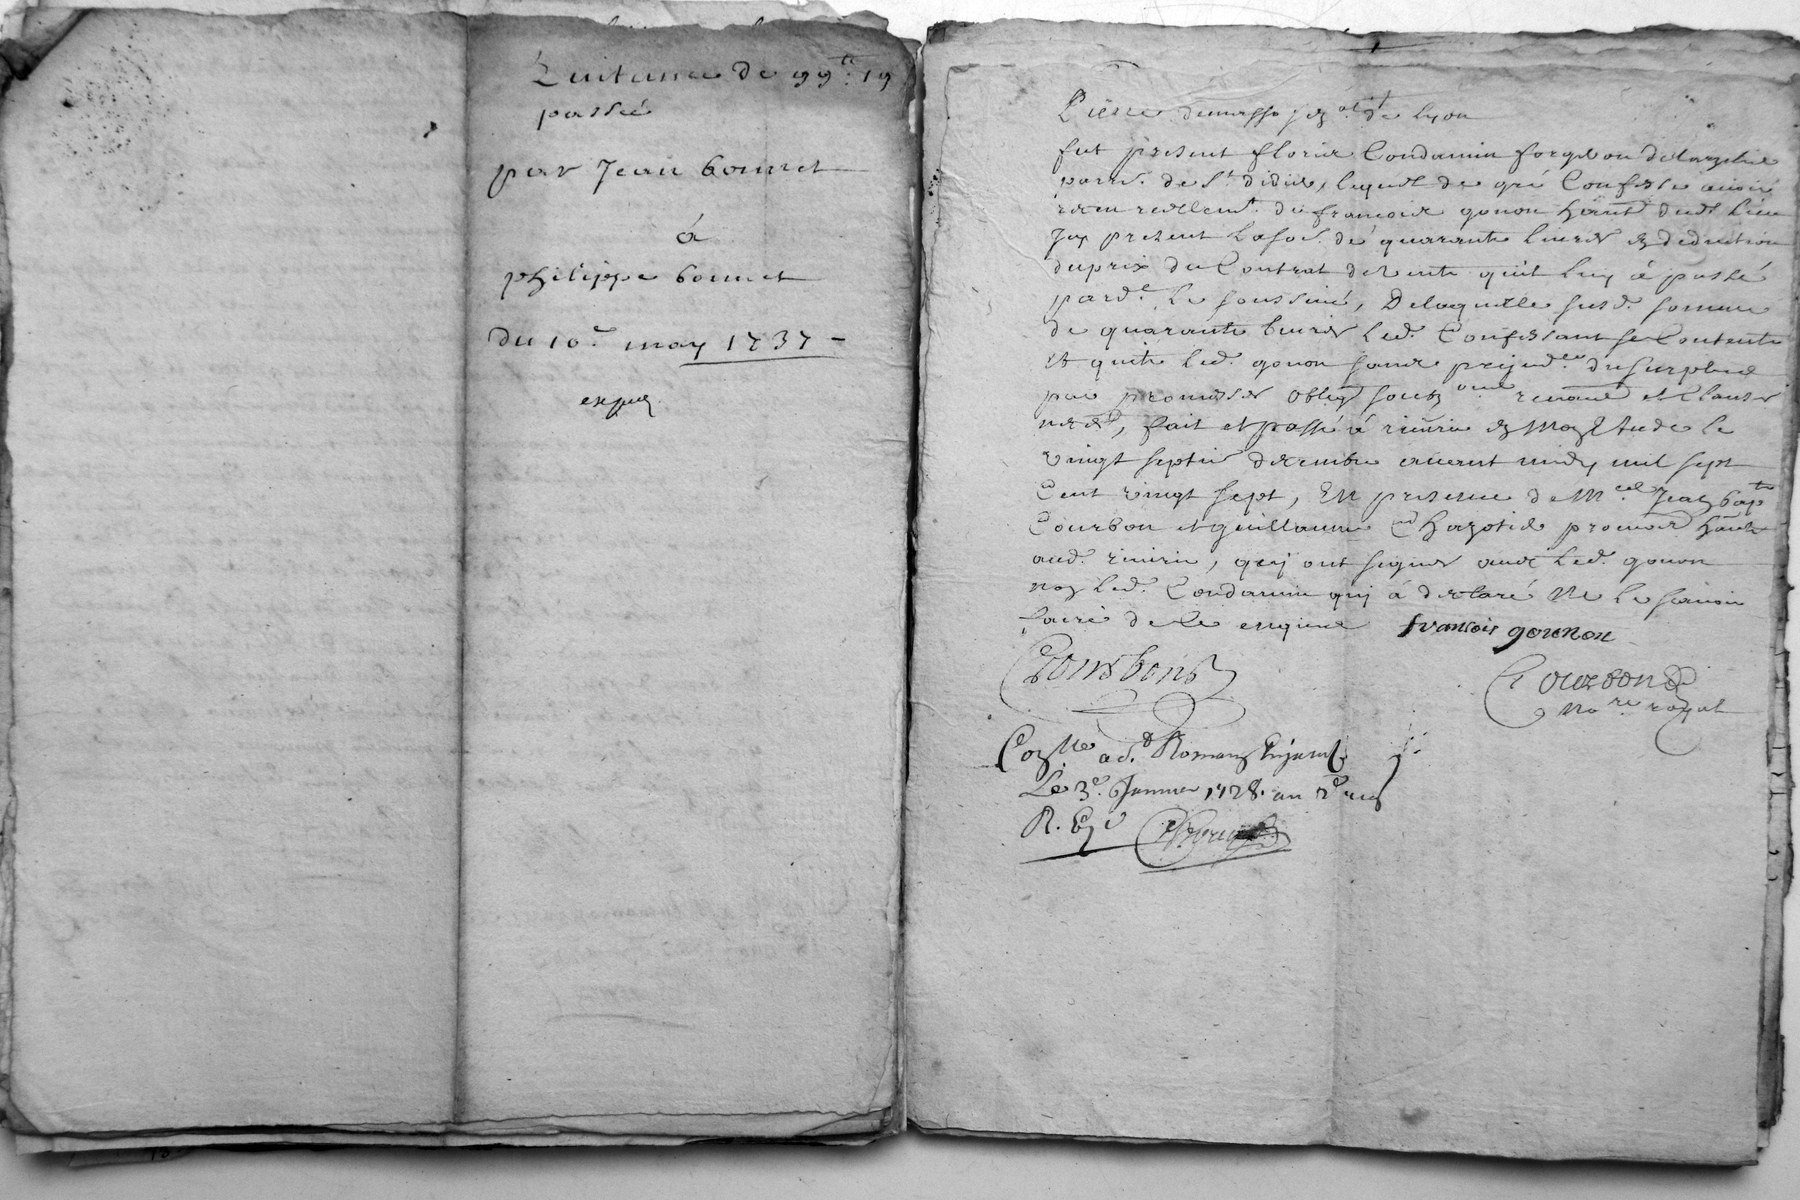 Quitance de 99 19
passée
par Jean bonnet
á
philippe bonnet
du 10e may 1737 -
exped
de Lyon
fut present Condamin forgeron
parr. de St didier, lequel de gré Confesse avoir
receu reellemt. de francois gonon habt. dudt. Lieu
Icy present La so. de quarante Livres en deduction
du prix du Contrat de vente qu'il luy á passé
pardt. Le soussiné, De laquelle susd. somme
de quarante Livres Led. Confessant se Contente
et quite led. gonon sans prejud.ce du surplus
par promesses oblig soubz et Clauses
fait et passé á rivirie en Mon Etude le
vingt septie decembre avant midy mil sept
Cent vingt sept, En presence de Mre Jean bapte
Courbon et guillaume habts
aud. rivirie, quy ont signes avec Led. gonon
non Led. Condamin quy á declaré Ne Le scavoir
faire de ce enquis francois gounon
Courbon
Courbon
nore royal
Conlle a St. Romain En Jarest
Le 3e. Janvier 1728. au
R.